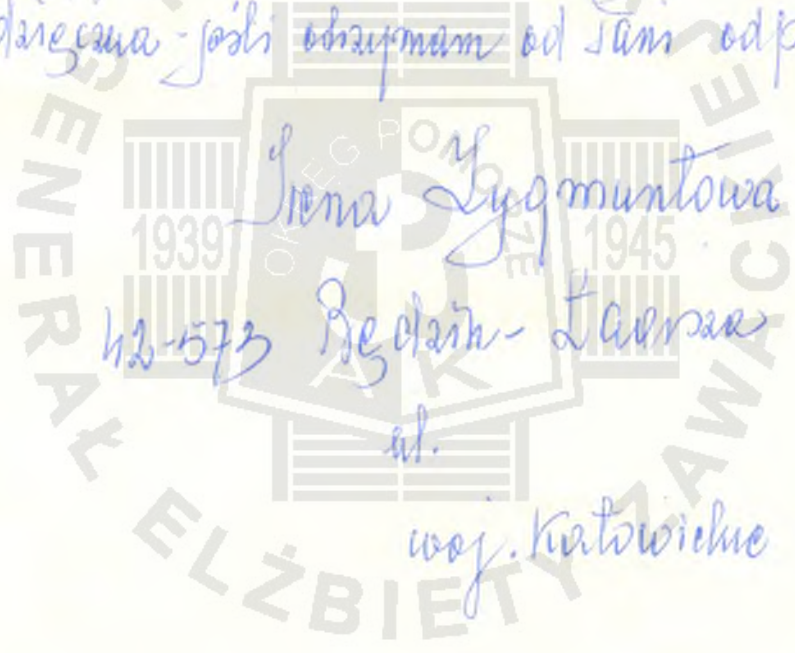 dzięczna - jeśli otrzymam od Pani odp
Irena Zygmuntowa
42-573 Będzin - Łagisza
ul.
woj. Katowickie
OKRĘG POMORZE
1939
1945
AK
GENERAŁ ELŻBIETY ZAWACKIEJ